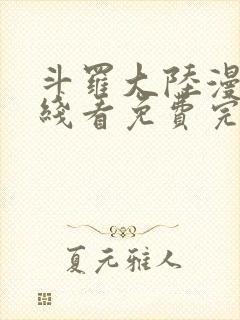 斗羅大陸漫
綫看免費完
夏元雅人